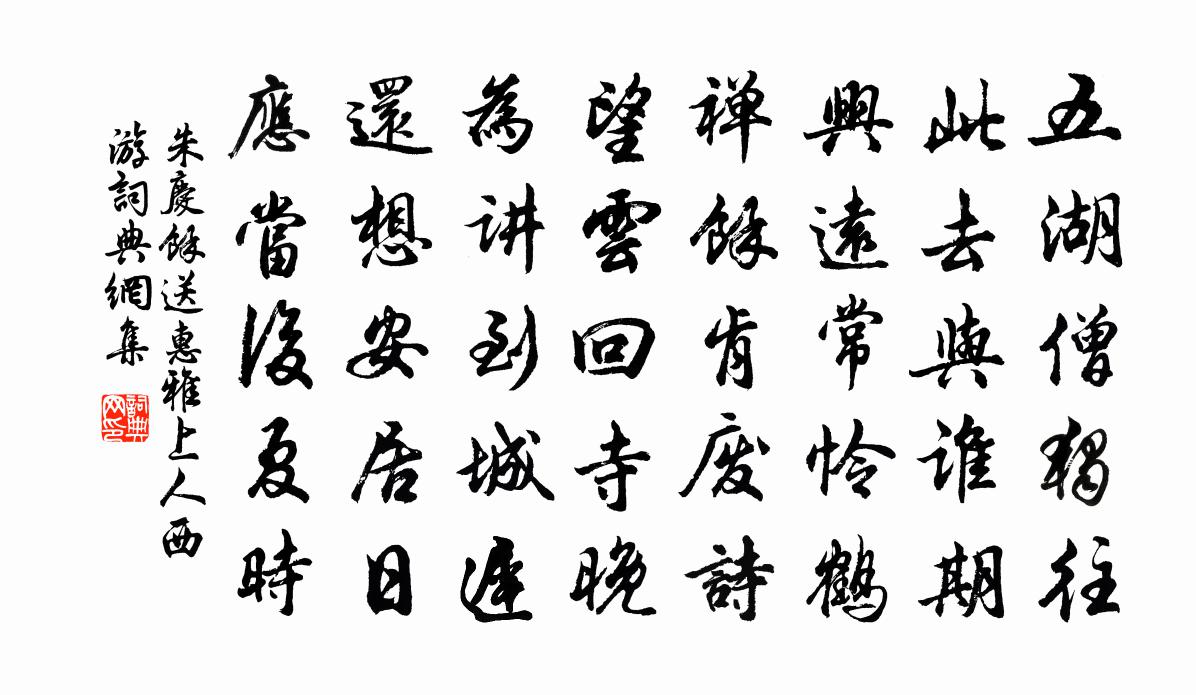 五湖僧獨往
此去與誰期
興遠常怜鶴
禅餘肯废詩
望雲回寺晚
為讲到城遲
還想安居日
應當後夏時
朱慶餘送惠雅上人西
游詞典網集
詞典网印